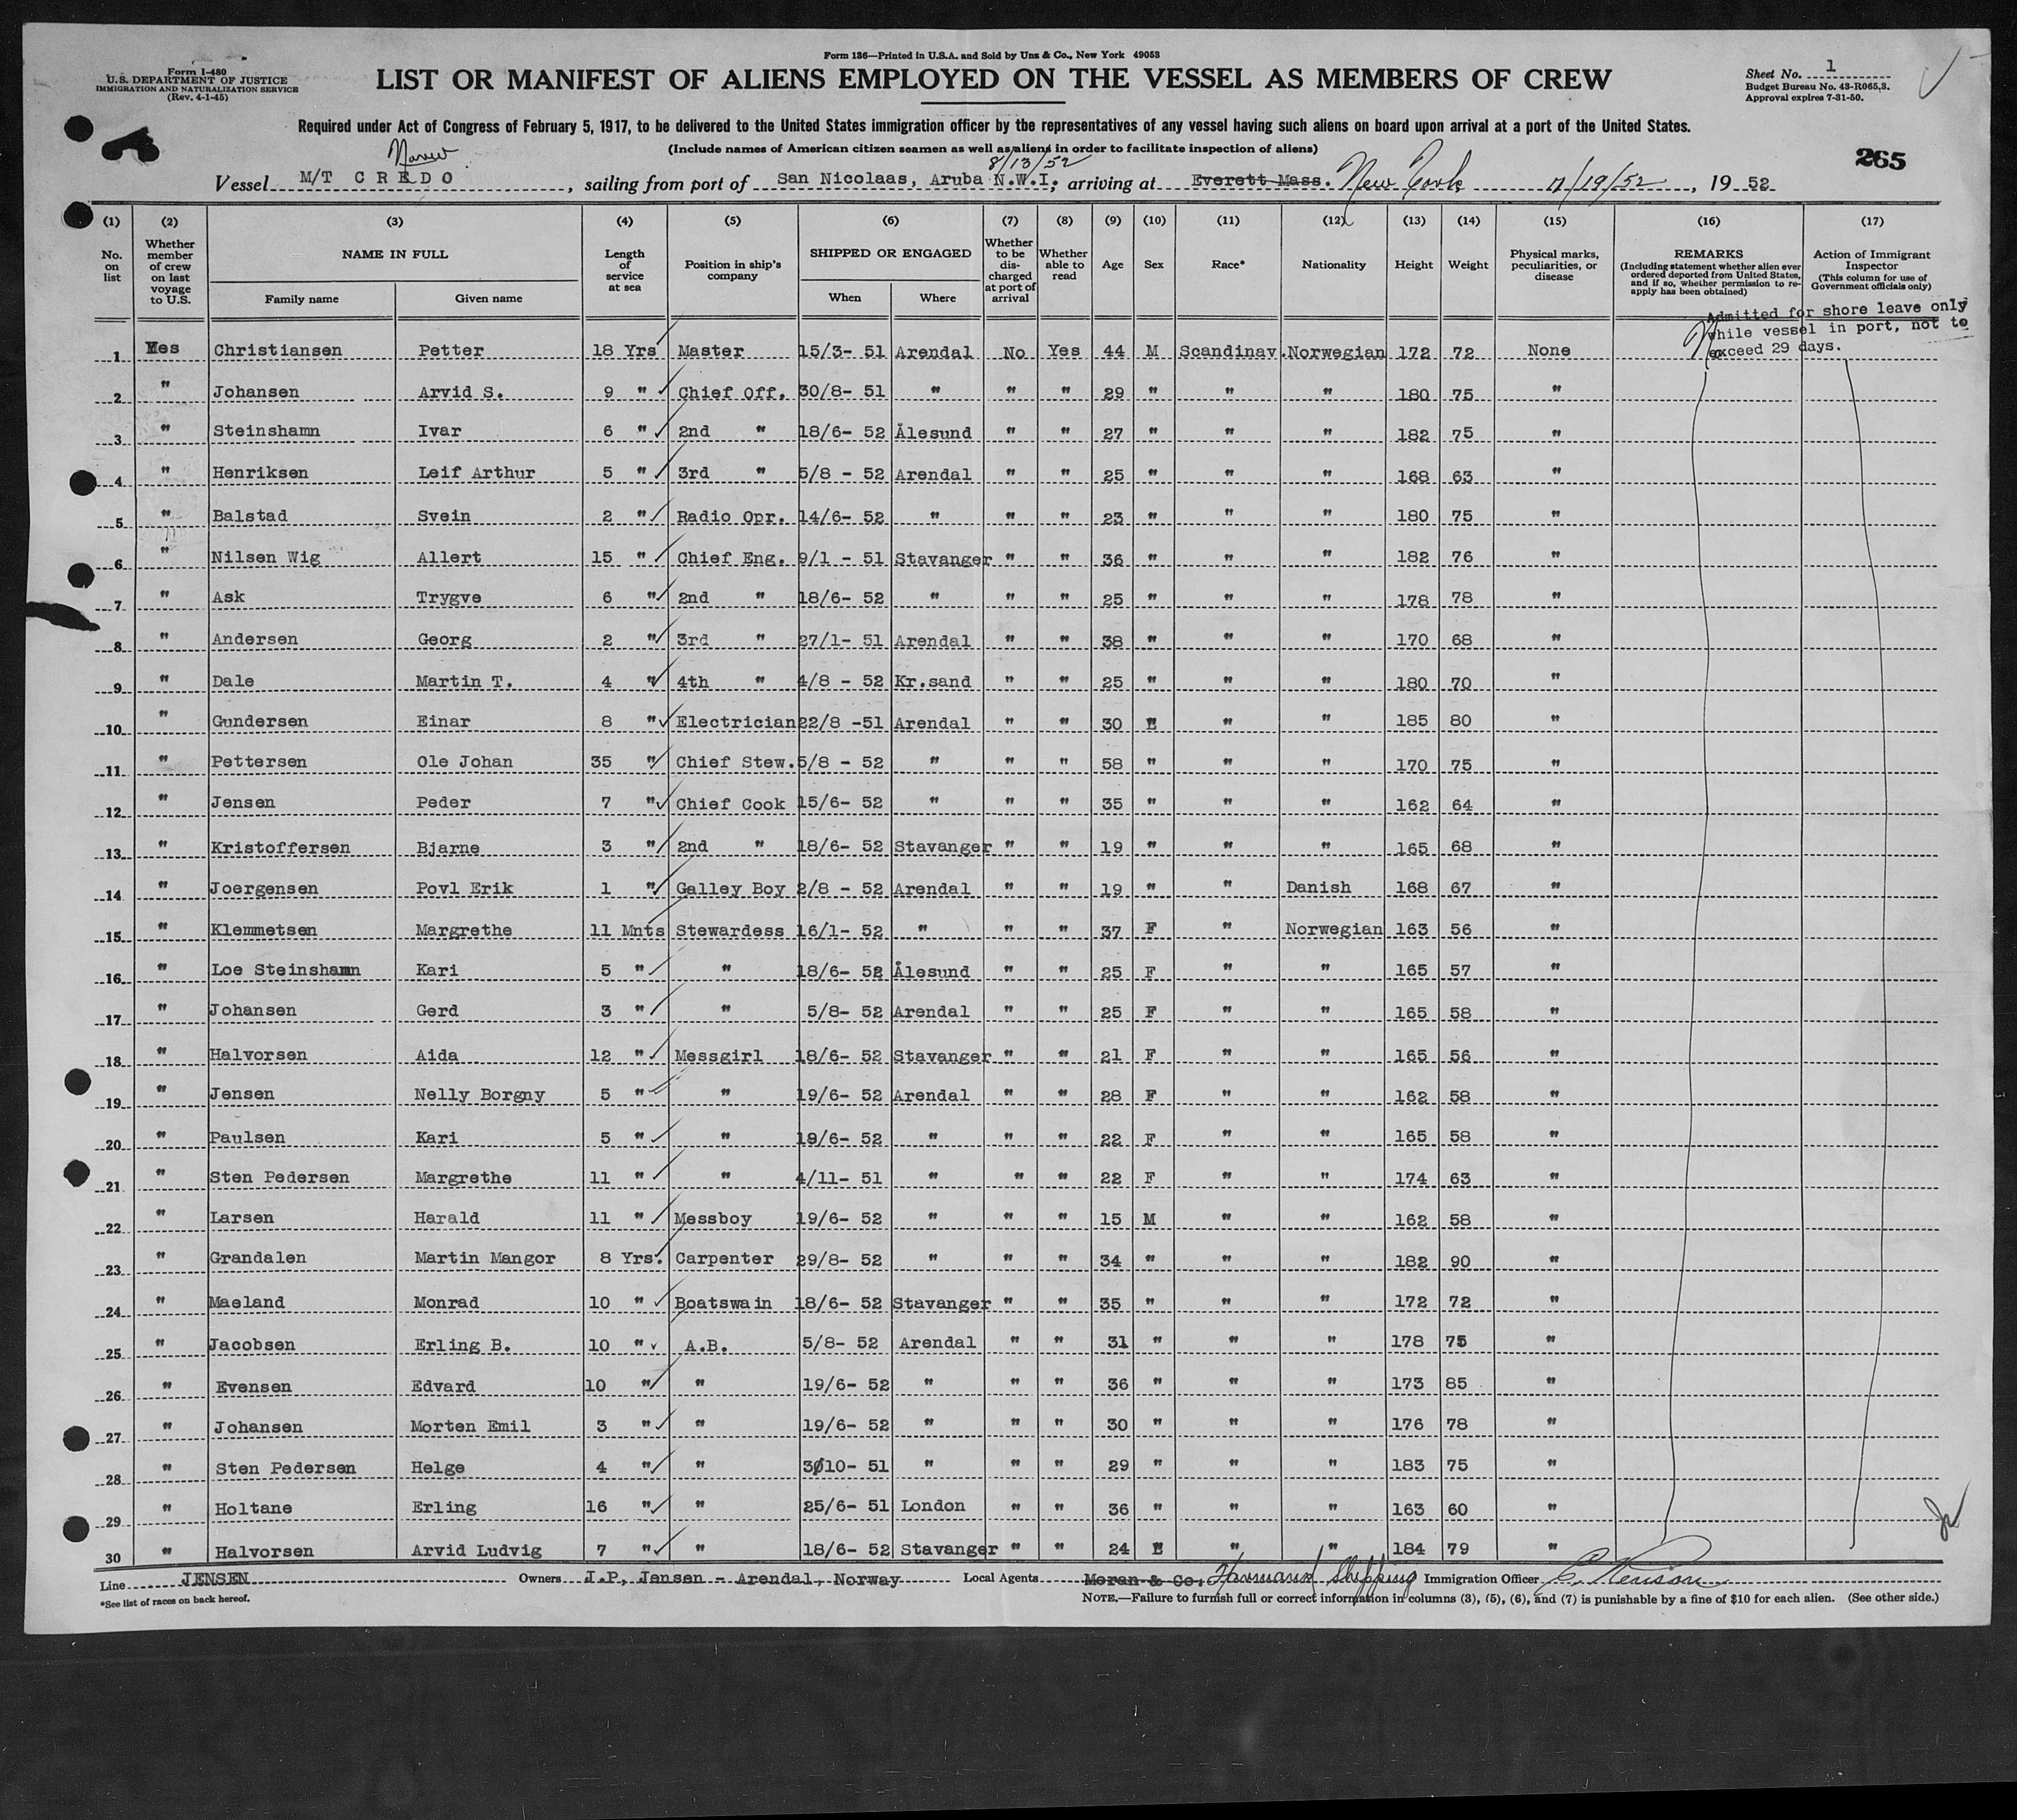 Form 136—Printed in U.S.A. and Sold by Unz & Co., New York 49053
Form I-480
U.S. DEPARTMENT OF JUSTICE
IMMIGRATION AND NATURALIZATION SERVICE
(Rev. 4-1-45)
LIST OR MANIFEST OF ALIENS EMPLOYED ON THE VESSEL AS MEMBERS OF CREW
Sheet No. 1
Budget Bureau No. 43-R065.3.
Approval expires 7-31-50.
Required under Act of Congress of February 5, 1917, to be delivered to the United States immigration officer by the representatives of any vessel having such aliens on board upon arrival at a port of the United States.
(Include names of American citizen seamen as well as aliens in order to facilitate inspection of aliens)
265
8/13/52
Vessel M/T CREDO, sailing from port of San Nicolaas, Aruba N.W.I, arriving at Everett Mass. New York /19/52, 1952
(1) (2) (3) (4) (5) (6) (7) (8) (9) (10) (11) (12) (13) (14) (15) (16) (17)
No. on list | Whether member of crew on last voyage to U.S. | NAME IN FULL Family name Given name | Length of service at sea | Position in ship's company | SHIPPED OR ENGAGED When Where | Whether to be discharged at port of arrival | Whether able to read | Age | Sex | Race* | Nationality | Height | Weight | Physical marks, peculiarities, or disease | REMARKS (Including statement whether alien ever ordered deported from United States, and if so, whether permission to reapply has been obtained) | Action of Immigrant Inspector (This column for use of Government officials only)
Admitted for shore leave only
while vessel in port, not to
exceed 29 days.
1 Yes Christiansen Petter 18 Yrs Master 15/3- 51 Arendal No Yes 44 M Scandinav. Norwegian 172 72 None
2 " Johansen Arvid S. 9 " Chief Off. 30/8- 51 " " " 29 " " " 180 75 "
3 " Steinshamn Ivar 6 " 2nd " 18/6- 52 Ålesund " " 27 " " " 182 75 "
4 " Henriksen Leif Arthur 5 " 3rd " 5/8 - 52 Arendal " " 25 " " " 168 63 "
5 " Balstad Svein 2 " Radio Opr. 14/6- 52 " " " 23 " " " 180 75 "
6 " Nilsen Wig Allert 15 " Chief Eng. 9/1 - 51 Stavanger " " 36 " " " 182 76 "
7 " Ask Trygve 6 " 2nd " 18/6- 52 " " " 25 " " " 178 78 "
8 " Andersen Georg 2 " 3rd " 27/1- 51 Arendal " " 38 " " " 170 68 "
9 " Dale Martin T. 4 " 4th " 4/8 - 52 Kr.sand " " 25 " " " 180 70 "
10 " Gundersen Einar 8 " Electrician 22/8 -51 Arendal " " 30 " " " 185 80 "
11 " Pettersen Ole Johan 35 " Chief Stew. 5/8 - 52 " " " 58 " " " 170 75 "
12 " Jensen Peder 7 " Chief Cook 15/6- 52 " " " 35 " " " 162 64 "
13 " Kristoffersen Bjarne 3 " 2nd " 18/6- 52 Stavanger " " 19 " " " 165 68 "
14 " Joergensen Povl Erik 1 " Galley Boy 2/8 - 52 Arendal " " 19 " " Danish 168 67 "
15 " Klemmetsen Margrethe 11 Mnts Stewardess 16/1- 52 " " " 37 F " Norwegian 163 56 "
16 " Loe Steinshamn Kari 5 " " 18/6- 52 Ålesund " " 25 F " " 165 57 "
17 " Johansen Gerd 3 " " 5/8- 52 Arendal " " 25 F " " 165 58 "
18 " Halvorsen Aida 12 " Messgirl 18/6- 52 Stavanger " " 21 F " " 165 56 "
19 " Jensen Nelly Borgny 5 " " 19/6- 52 Arendal " " 28 F " " 162 58 "
20 " Paulsen Kari 5 " " 19/6- 52 " " " 22 F " " 165 58 "
21 " Sten Pedersen Margrethe 11 " " 4/11- 51 " " " 22 F " " 174 63 "
22 " Larsen Harald 11 " Messboy 19/6- 52 " " " 15 M " " 162 58 "
23 " Grandalen Martin Mangor 8 Yrs. Carpenter 29/8- 52 " " " 34 " " " 182 90 "
24 " Maeland Monrad 10 " Boatswain 18/6- 52 Stavanger " " 35 " " " 172 72 "
25 " Jacobsen Erling B. 10 " A.B. 5/8- 52 Arendal " " 31 " " " 178 75 "
26 " Evensen Edvard 10 " " 19/6- 52 " " " 36 " " " 173 85 "
27 " Johansen Morten Emil 3 " " 19/6- 52 " " " 30 " " " 176 78 "
28 " Sten Pedersen Helge 4 " " 3/10- 51 " " " 29 " " " 183 75 "
29 " Holtane Erling 16 " " 25/6- 51 London " " 36 " " " 163 60 "
30 " Halvorsen Arvid Ludvig 7 " " 18/6- 52 Stavanger " " 24 " " " 184 79 "
Line JENSEN Owners J.P. Jensen - Arendal, Norway Local Agents Moran & Co, Shipping Immigration Officer
*See list of races on back hereof.
NOTE.—Failure to furnish full or correct information in columns (3), (5), (6), and (7) is punishable by a fine of $10 for each alien. (See other side.)